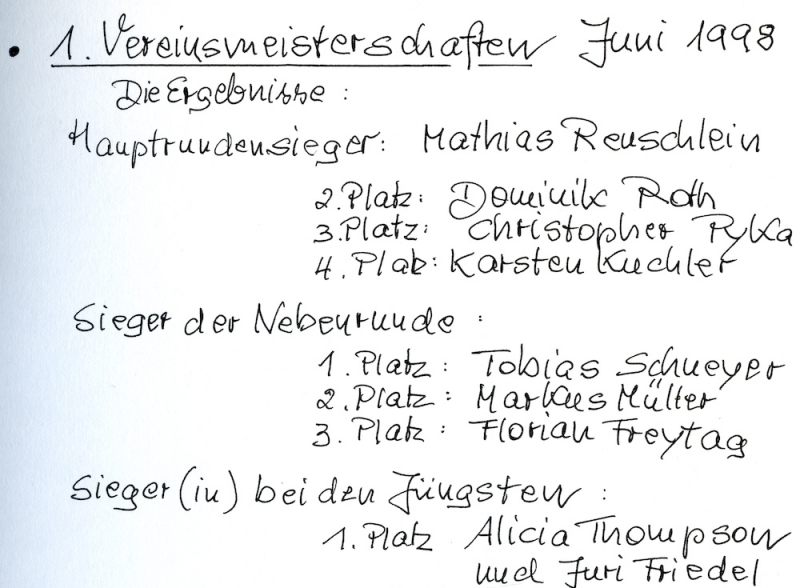 • 1. Vereinsmeisterschaften Juni 1998
Die Ergebnisse :
Hauptrundensieger: Mathias Reuschlein
2. Platz: Dominik Roth
3. Platz: Christopher Pylka
4. Platz: Karsten Kuchler
Sieger der Nebenrunde :
1. Platz : Tobias Schneyer
2. Platz : Markus Müller
3. Platz : Florian Freytag
Sieger (in) bei den Jüngsten :
1. Platz Alicia Thompson
und Juri Friedel